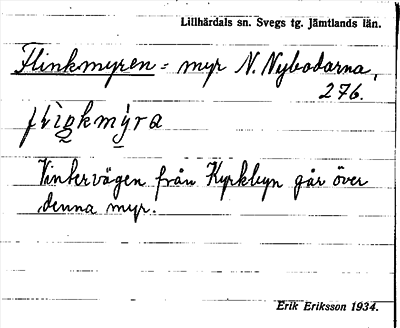 Lillhärdals sn. Svegs tg. Jämtlands län.
Flinkmyren = myr N. Nybodarna,
276.
Vintervägen från Kyrkbyn går över
denna myr.
Erik Eriksson 1934.